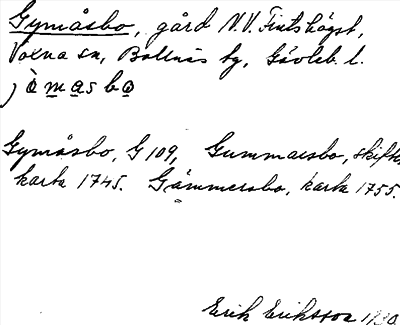 Gymåsbo, gård N.V. Finnhögst,
Voxna sn, Bollnäs tg, Gävleb. l.
jò̀masbo
Gymåsbo, G 109, Gummaesbo, skifts
karta 1745. Gämmersbo, karta 1755.
Erik Eriksson 1930